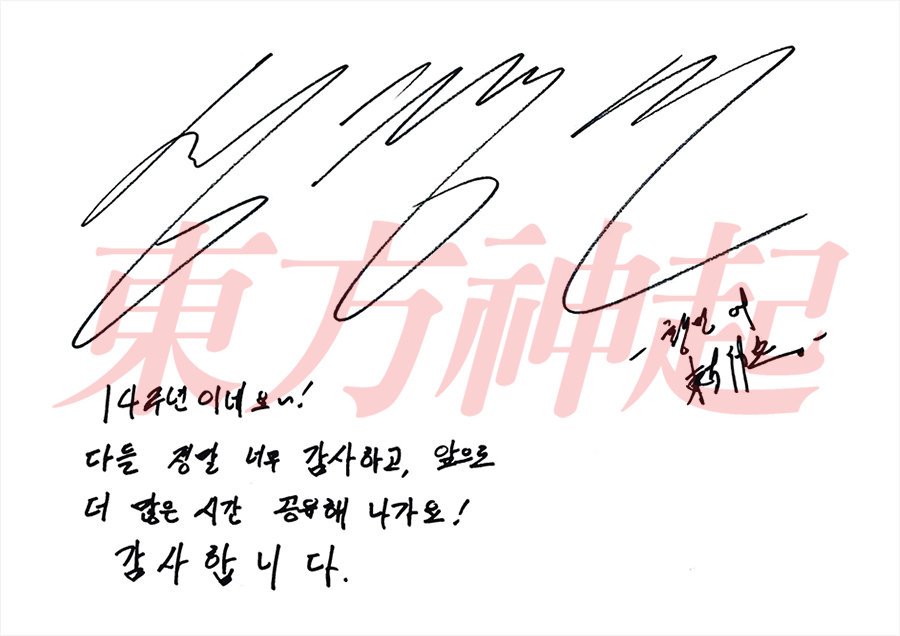 심창민
東方神起
14주년이네요~!
다들 정말 너무 감사하고, 앞으로
더 많은 시간 공유해 나가요!
감사합니다.